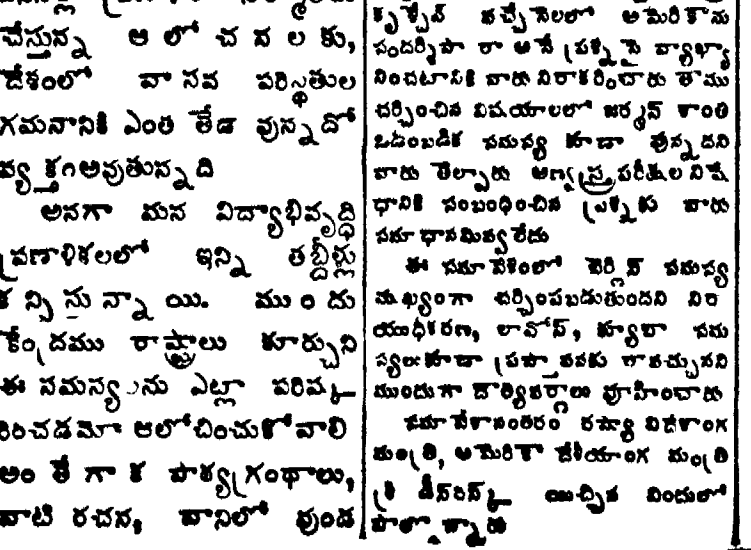 చేస్తున్న ఆ లో చ న ల కు,
దేశంలో వా స్తవ పరిస్థితుల
గమనానికి ఎంత తేడ వున్నదో
వ్య క్తం అవుతున్న ది
అనగా మన విద్యాభివృద్ధి
ప్రణాళికలలో ఇన్ని తబ్దీళ్లు
క న్పి స్తు న్నా యి. ముం దు
కేంద్రము రాష్ట్రాలు కూర్చుని
ఈ సమస్య ను ఎట్లా పరిష్క
రించడమో ఆలోచించుకోవాలి
అం తే గా క పాఠ్య గ్రంథాలు,
వాటి రచన, వానిలో వుండ
కృశ్చేవ్ వచ్చే నెలలో అమెరికాను
సందర్శిస్తా రా అనే ప్రశ్న పై వ్యాఖ్యా
నించటానికి వారు నిరాకరించారు తాము
చర్చించిన విషయాలలో జర్మన్ శాంతి
ఒడంబడిక సమస్య కూడా వున్నదని
వారు తెల్పారు అణ్వస్త్ర పరీక్షల నిషే
ధానికి సంబంధించిన ప్రశ్నకు వారు
సమా ధానమివ్వ లేదు
ఈ సమా వేశంలో బెర్లిన్ సమస్య
ముఖ్యంగా చర్చింపబడుతుందని నిరా
యుధీకరణ, లావోస్, క్యూబా సమ
స్యలుకూడా ప్రస్తావనకు రావచ్చునని
ముందుగా దౌత్యవర్గాలు వూహించారు
సమా వేశానంతరం రష్యా విదేశాంగ
మంత్రి, అమెరికా దేశీయాంగ మంత్రి
శ్రీ డీన్‌రస్క్ యిచ్చిన విందులో
పాల్గొన్నారు